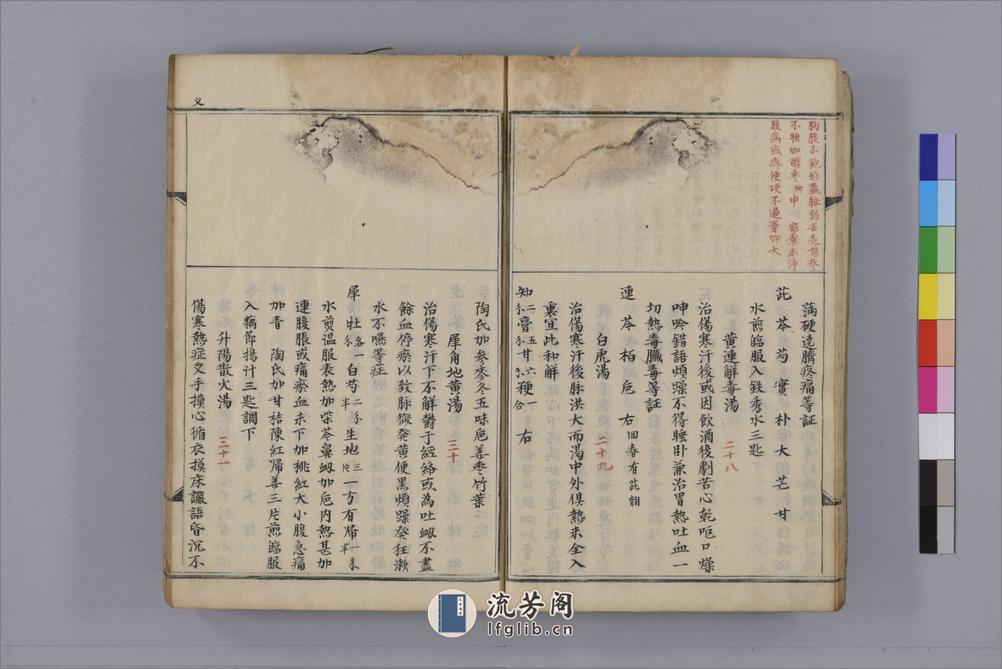 胸腹不飽形氣脉弱去
不睡如醉
腹滿或疼便硬不通量加大
滿硬遶臍疼痛等証
茈 芩 芍 實 朴 大 芒 甘
水煎臨服入鉄秀水三匙
黃連解毒湯 二十八
治傷寒汗後或因飲酒後劇苦心乾呕口燥
呻吟錯語煩躁不得睡卧兼治冒熱吐血一
切熱毒臟毒等証
連 芩 柏 卮 右 回春有茈翹
白虎湯 二十九
治傷寒汗後脉洪大而渴中外俱熱未全入
裏宜此和解
知 二钱 膏 五钱 甘 六分 粳 一合 右
陶氏加参麥冬五味卮姜枣竹葉
犀角地黃湯 三十
治傷寒汗下不解鬱于經絡或為吐衂不盡
餘血停瘀以致脉微発黄便黒煩躁発狂漱
水不嚥等症
犀 牡 各一钱 白芍 二钱半 生地 三钱 一方有帰 一钱半
水煎温服表熱加柴芩鼻衂加卮内熱甚加
連腹脹或痛瘀血未下加桃紅大小腹急痛
加青 陶氏加甘桔陳紅帰姜三片煎臨服
入藕節搗汁三匙調下
升陽散火湯 三十一
傷寒熱症叉手摸心循衣摸床讝語昏沉不
流芳阁
lfglib.cn